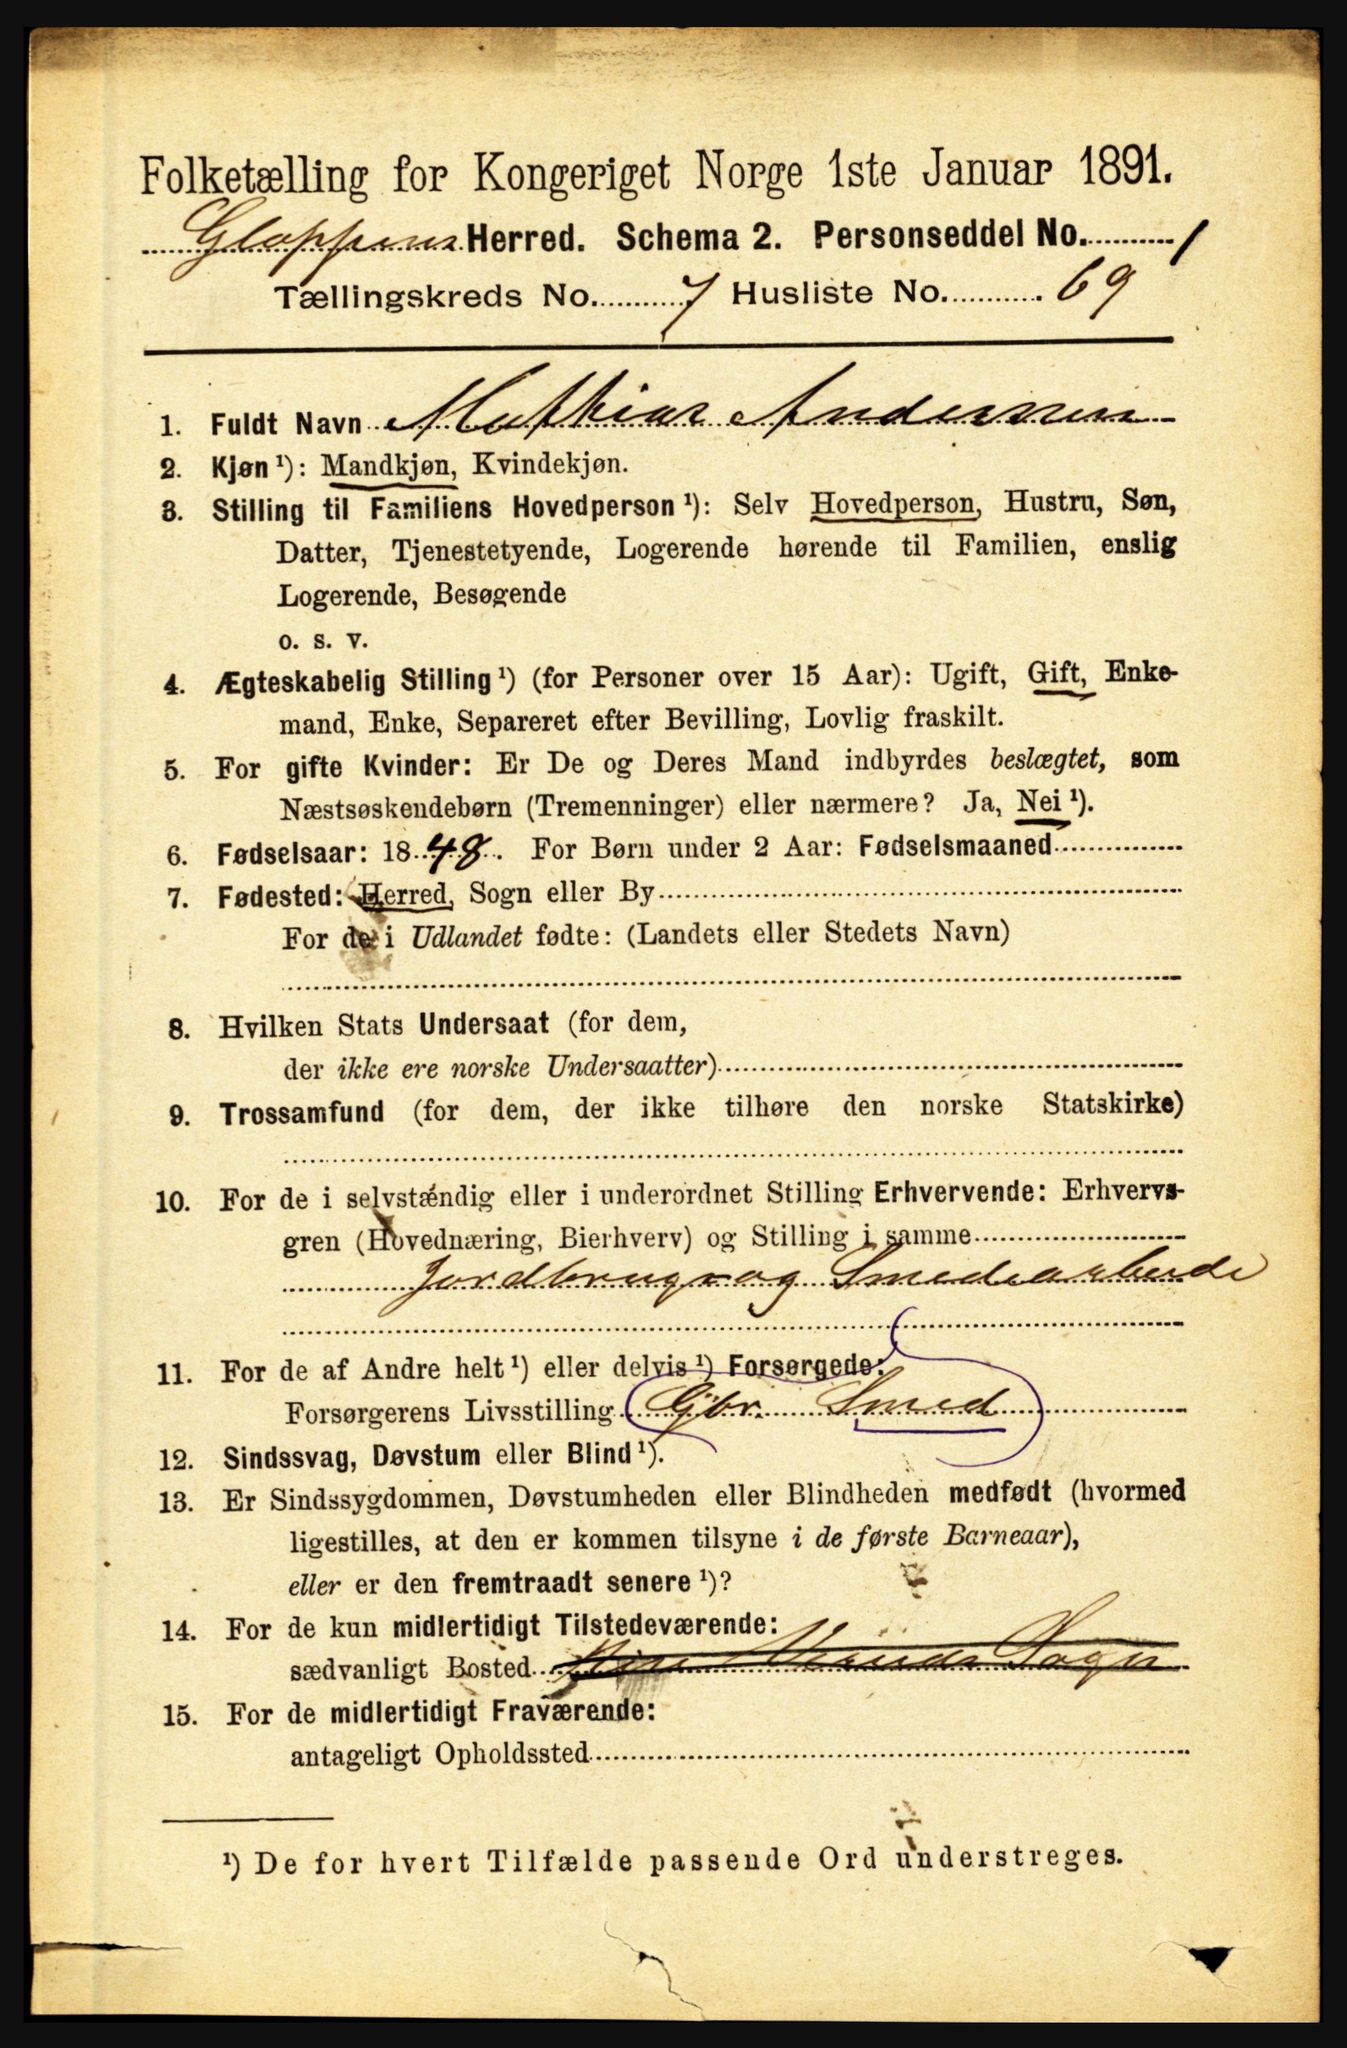 Folketælling for Kongeriget Norge 1ste Januar 1891.
Gloppens Herred. Schema 2. Personseddel No. 1
Tællingskreds No. 7 Husliste No. 69
1. Fuldt Navn Mathias Anderssen
2. Kjøn ¹): Mandkjøn, Kvindekjøn.
3. Stilling til Familiens Hovedperson ¹): Selv Hovedperson, Hustru, Søn,
Datter, Tjenestetyende, Logerende hørende til Familien, enslig
Logerende, Besøgende
o. s. v.
4. Ægteskabelig Stilling ¹) (for Personer over 15 Aar): Ugift, Gift, Enke-
mand, Enke, Separeret efter Bevilling, Lovlig fraskilt.
5. For gifte Kvinder: Er De og Deres Mand indbyrdes beslægtet, som
Næstsøskendebørn (Tremenninger) eller nærmere? Ja, Nei ¹).
6. Fødselsaar: 1848. For Børn under 2 Aar: Fødselsmaaned
7. Fødested: Herred, Sogn eller By
For de i Udlandet fødte: (Landets eller Stedets Navn)
8. Hvilken Stats Undersaat (for dem,
der ikke ere norske Undersaatter)
9. Trossamfund (for dem, der ikke tilhøre den norske Statskirke)
10. For de i selvstændig eller i underordnet Stilling Erhvervende: Erhvervs-
gren (Hovednæring, Bierhverv) og Stilling i samme
Jordbrug og Smedearbeide
11. For de af Andre helt ¹) eller delvis ¹) Forsørgede:
Forsørgerens Livsstilling Gbr. Smed
12. Sindssvag, Døvstum eller Blind ¹).
13. Er Sindssygdommen, Døvstumheden eller Blindheden medfødt (hvormed
ligestilles, at den er kommen tilsyne i de første Barneaar),
eller er den fremtraadt senere ¹)?
14. For de kun midlertidigt Tilstedeværende:
sædvanligt Bosted Sogn
15. For de midlertidigt Fraværende:
antageligt Opholdssted
¹) De for hvert Tilfælde passende Ord understreges.